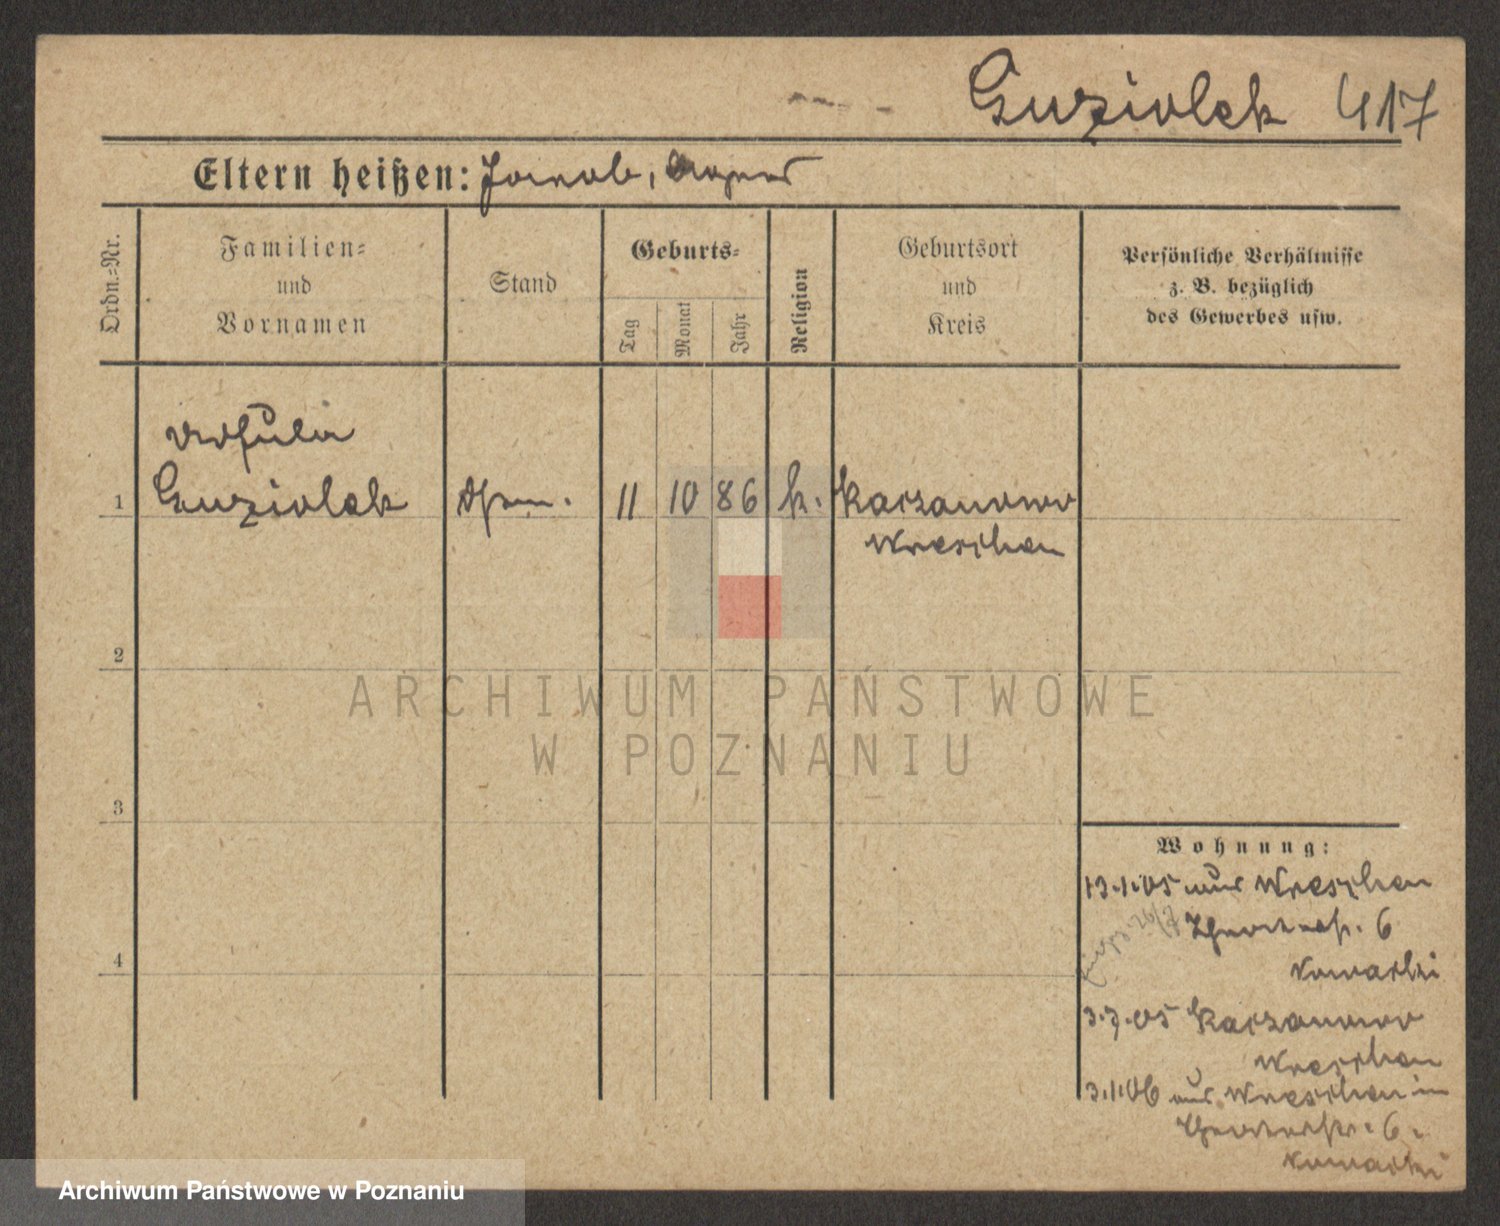 Guziolek 417
Eltern heißen: Jacob, Agnes
Ordn.=Nr.
Familien=
und
Vornamen
Stand
Geburts=
Tag
Monat
Jahr
Religion
Geburtsort
und
Kreis
Persönliche Verhältnisse
z. B. bezüglich
des Gewerbes usw.
1
Guziolek
11 10 86 k. Kaczanowo
Wreschen
2
ARCHIWUM PAŃSTWOWE
W POZNANIU
3
4
Wohnung:
13.1.05 aus Wreschen
6
Nowacki
3.7.05 Kaczanowo
Wreschen
3.1.06 aus Wreschen in
6.
Nowacki
Archiwum Państwowe w Poznaniu